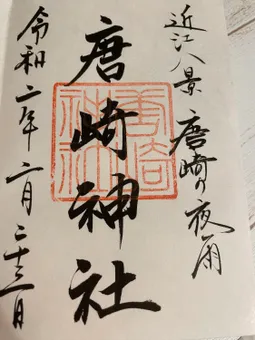 近江八景 唐崎の夜雨
唐崎神社
唐崎
神社
令和二年二月二十三日